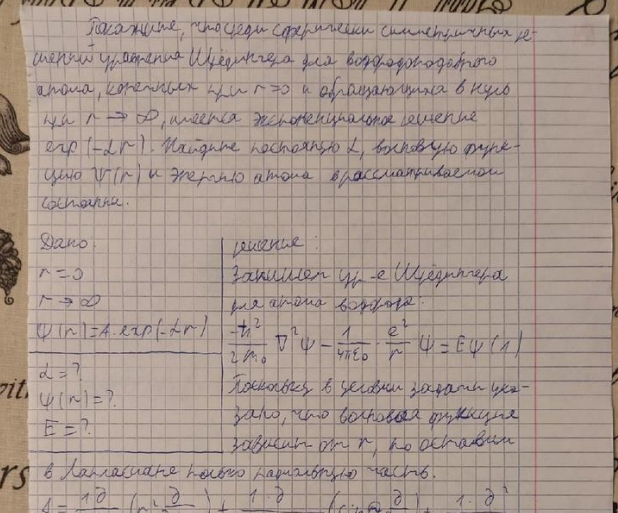 Покажите, что среди сферически симметричных ре-
шений уравнения Шрёдингера для водородоподобного
атома, конечных при r=0 и обращающихся в нуль
при r → ∞, имеется экспоненциальное решение
exp(-αr). Найдите постоянную α, волновую функ-
цию Ψ(r) и энергию атома в рассматриваемом
состоянии.
Дано:
r=0
r → ∞
Ψ(r)=A·exp(-αr)
α=?
Ψ(r)=?
E=?
решение:
Запишем ур-е Шрёдингера
для атома водорода:
-ħ²/2m₀ ∇²Ψ - 1/4πε₀ · e²/r Ψ = EΨ (1)
Поскольку в условии задачи ука-
зано, что волновая функция
зависит от r, то оставим
в Лапласиане только радиальную часть.